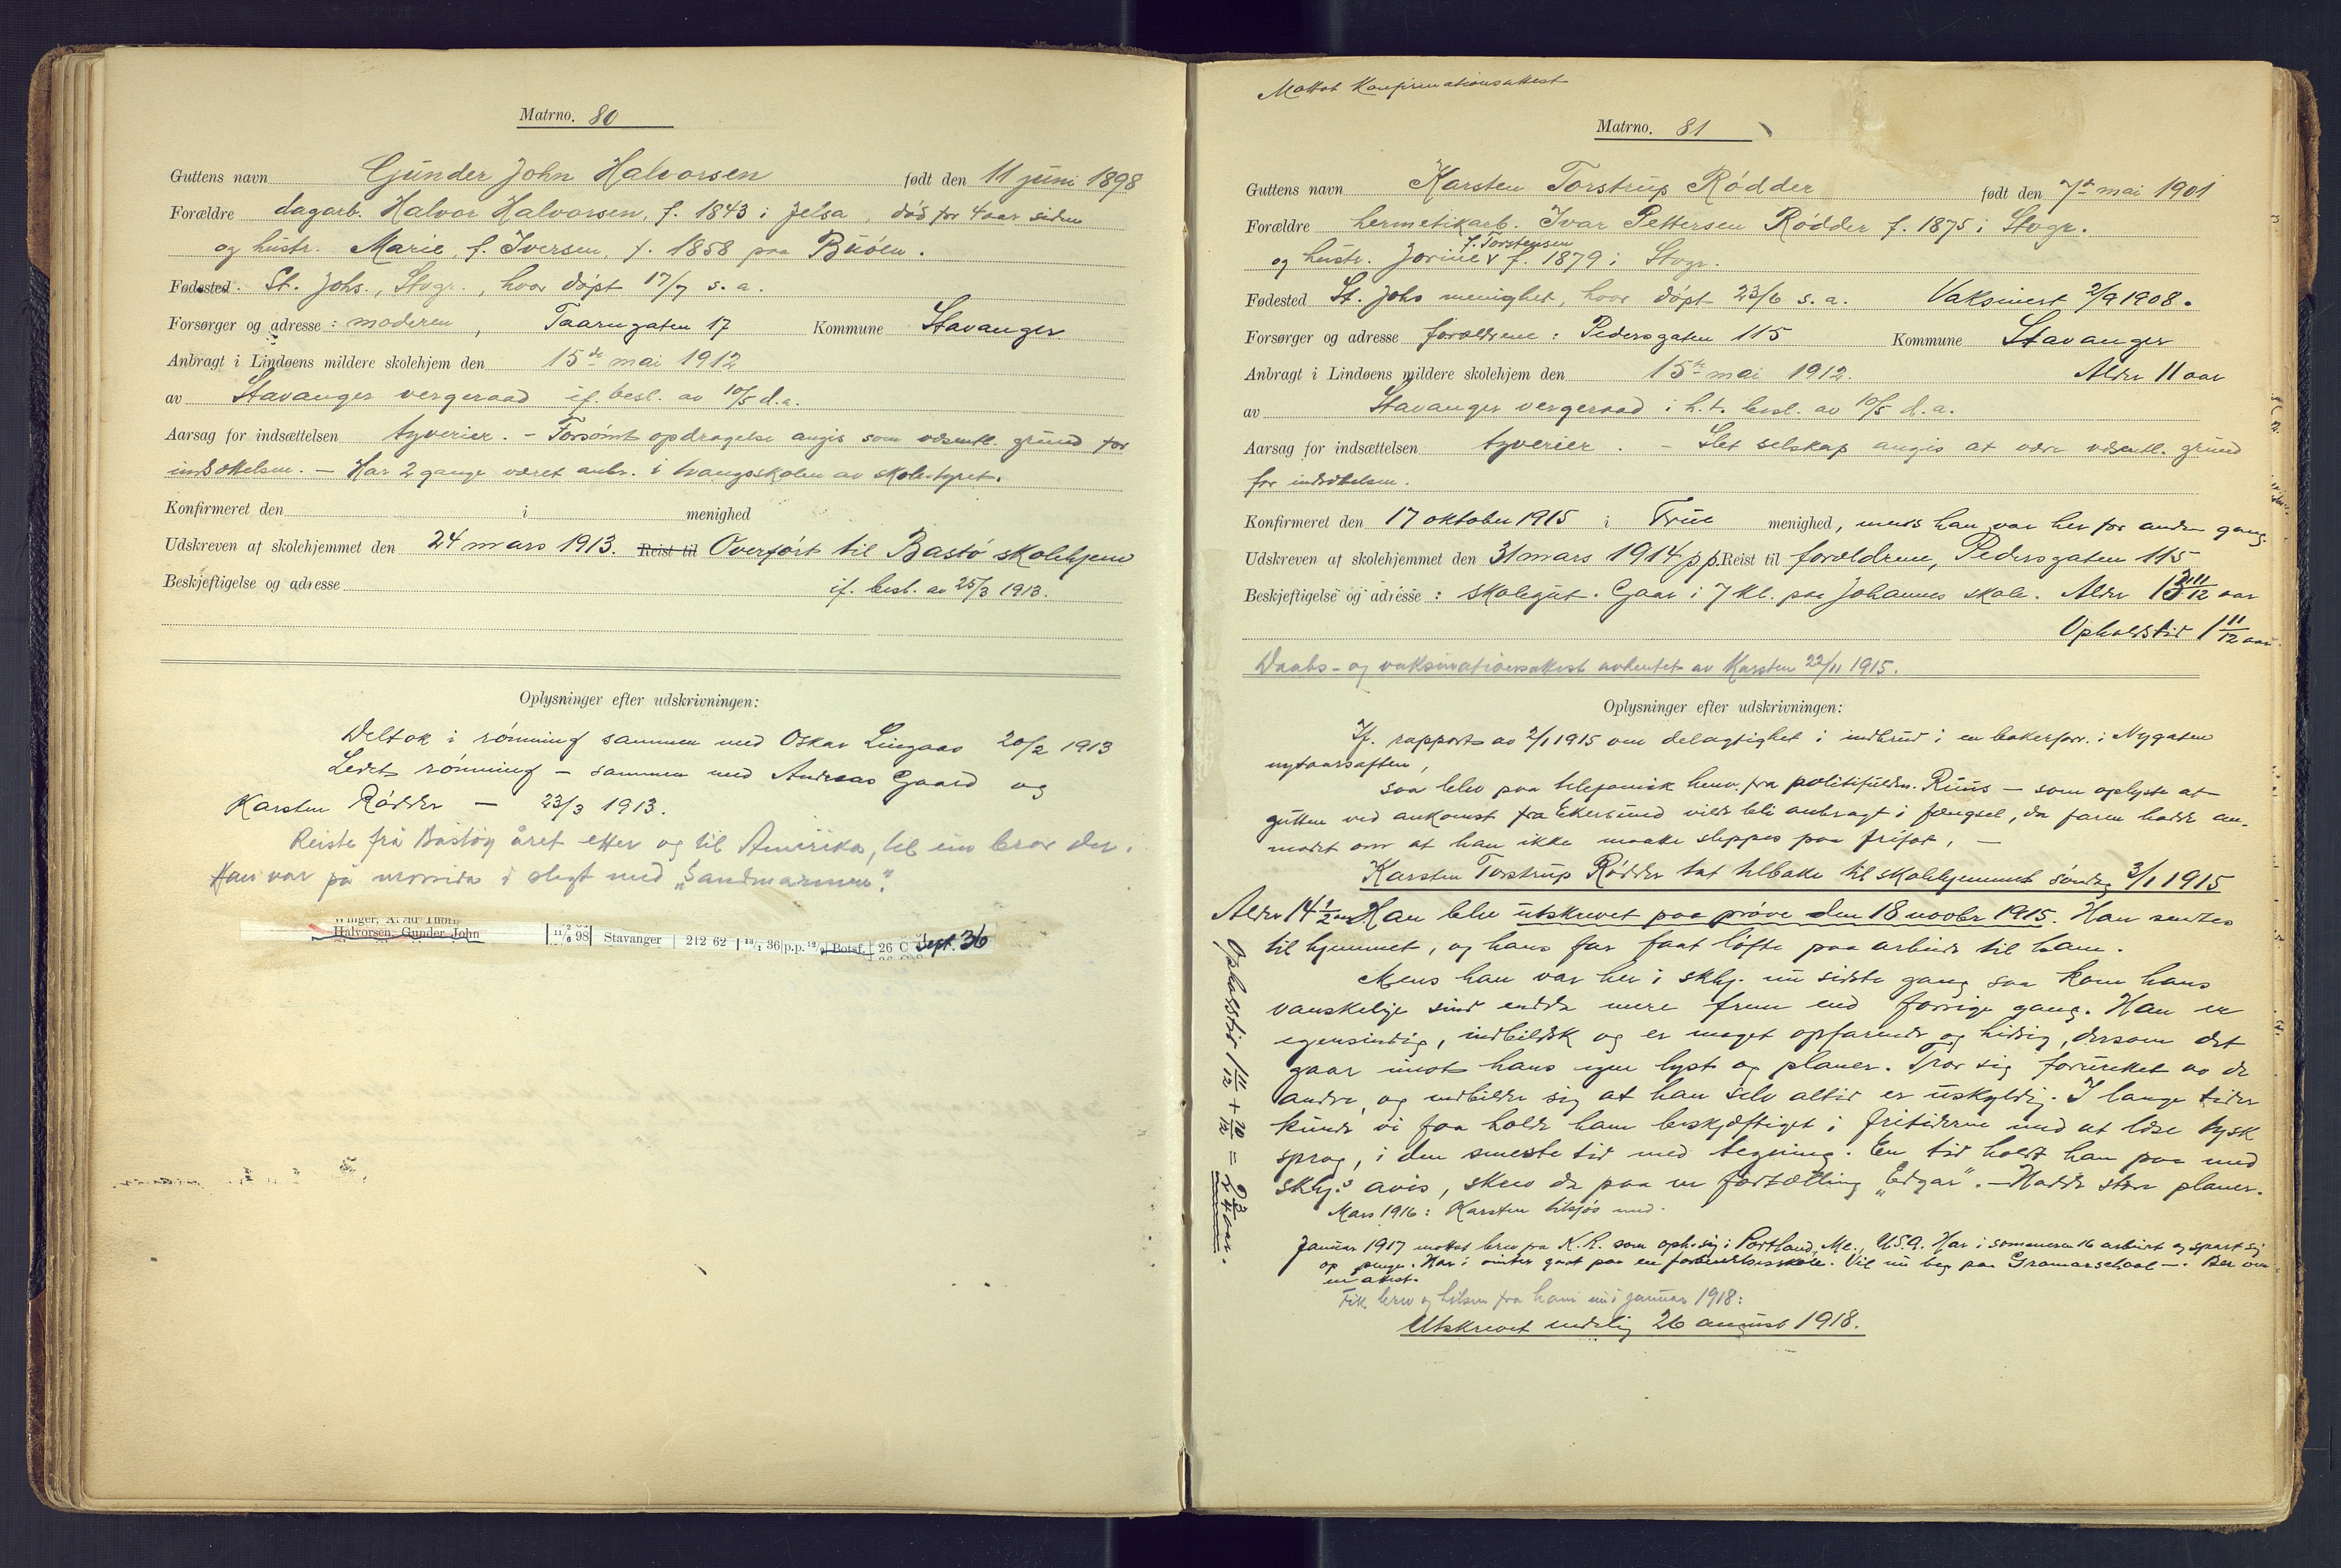 Matrno. 80
Guttens navn Gunder John Halvorsen født den 11 juni 1898
Forældre dagarb. Halvor Halvorsen, f. 1843 i Jelsa, død for 4 aar siden
og hustr. Marie, f. Iversen, f. 1858 paa Buöen.
Fødested. St. Johs., Stvgr., hvor döpt 17/7 s. a.
Forsørger og adresse: moderen, Taarngaten 17 Kommune Stavanger
Anbragt i Lindøens mildere skolehjem den 15de mai 1912
av Stavanger vergeraad if. besl. av 10/5 d. a.
Aarsag for indsættelsen tyverier. - Forsömt opdragelse angis som vesentl. grund for
indsættelsen. - Har 2 gange været anbr. i tvangsskolen av skolestyret.
Konfirmeret den i menighed
Udskreven af skolehjemmet den 24 mars 1913. Reist til Overfört til Bastö skolehjem
Beskjeftigelse og adresse if. besl. av 25/3 1913.
Oplysninger efter udskrivningen:
Deltok i römning sammen med Oskar Lingaas 20/2 1913
Ledet römning - sammen med Andreas Gaard og
Karsten Rödder - 23/3 1913.
Reiste frå Bastöy året etter og til Amerika, til ein bror der.
Han var på morsida i slegt med „Sandmannen".
Halvorsen, Gunder John 11/6 98 Stavanger 212 62 13/1 36 p.p. Botsf. 26 C Sept. 36
Mottat Konfirmationsattest
Matrno. 81
Guttens navn Karsten Torstrup Rödder født den 7de mai 1901
Forældre hermetikarb. Ivar Pettersen Rödder f. 1875 i Stvgr.
f. Torstensen
og hustr. Jorine v f. 1879 i Stvgr.
Fødested St. Johs menighet, hvor döpt 23/6 s. a. Vaksinert 2/9 1908.
Forsørger og adresse forældrene: Pedersgaten 115 Kommune Stavanger
Anbragt i Lindøens mildere skolehjem den 15de mai 1912. Alder 11 aar
av Stavanger vergeraad i h. t. besl. av 10/5 d. a.
Aarsag for indsættelsen tyverier. - Slet selskap angis at være vesentl. grund
for indsættelsen.
Konfirmeret den 17 oktober 1915 i Frue menighed, mens han var her for anden gang.
Udskreven af skolehjemmet den 31 mars 1914 p.p. Reist til forældrene, Pedersgaten 115
Beskjeftigelse og adresse: skolegut. Gaar i 7 kl. paa Johannes skole. Alder 12 11/12 aar
Opholdstid 1 11/12 aar
Daabs- og vaksinationsattest avhentet av Karsten 22/11 1915.
Oplysninger efter udskrivningen:
If. rapport av 2/1 1915 om delagtighet i indbrud i en bakerforr. i Nygaten
nytaarsaften,
saa blev paa telefonisk henv. fra politifuldm. Ruus - som oplyste at
gutten ved ankomst fra Ekersund vilde bli anbragt i fængsel, da faren hadde an-
modet om at han ikke maatte slippes paa frifot, -
Karsten Torstrup Rödder tat tilbake til skolehjemmet söndag 3/1 1915
Alder 14 1/2 aar Han blev utskrevet paa pröve den 18 novbr 1915. Han sendtes
til hjemmet, og hans far faat löfte paa arbeide til ham.
Mens han var her i skhj. nu sidste gang saa kom hans
vanskelige sind endda mere frem end forrige gang. Han er
egensindig, indbildsk og er meget opfarende og hidsig, dersom det
gaar imot hans egne lyst og planer. Tror sig forurettet av de
andre, og indbilder sig at han selv altid er uskyldig. I lange tider
kunde vi faa holde ham beskjæftiget i fritiderne med at læse tysk
sprog, i den seneste tid med tegning. En tid holdt han paa med
skhj.s avis, skrev da paa en fortælling „Edgar". - Hadde store planer.
Opholdstid 1 11/12 + 10/12 = 2 3/4 aar.
Mars 1916: Karsten tilsjös med.
Januar 1917 mottat brev fra K. R. som oph. sig i Portland, Me., U.S.A. Har i sommeren 16 arbeidet og spart sig
op penge. Har i vinter gaat paa en forberedelsesskole. Vil nu beg. paa Gramarschool -. Ber om
en attest.
Fik brev og hilsen fra ham nu i januar 1918:
Utskrevet endelig 26 august 1918.